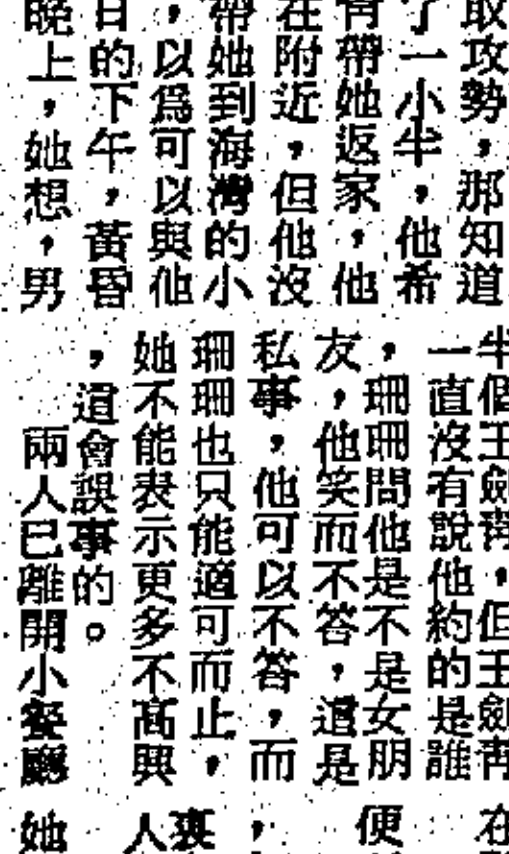 取攻勢，那知道
了一小半，他希
肯帶她返家，他
在附近，但他沒
帶她到海灣的小
，以爲可以與他
日的下午，黃昏
晚上，她想，男
半個王劍青，但王劍青
一直沒有說他約的是誰
，珊珊問他是不是女朋
友，他笑而不答，這是
私事，他可以不答，而
珊珊也只能適可而止，
她不能表示更多不高興
，這會誤事的。
兩人已離開小餐廳
在
便
，
裏
人
她